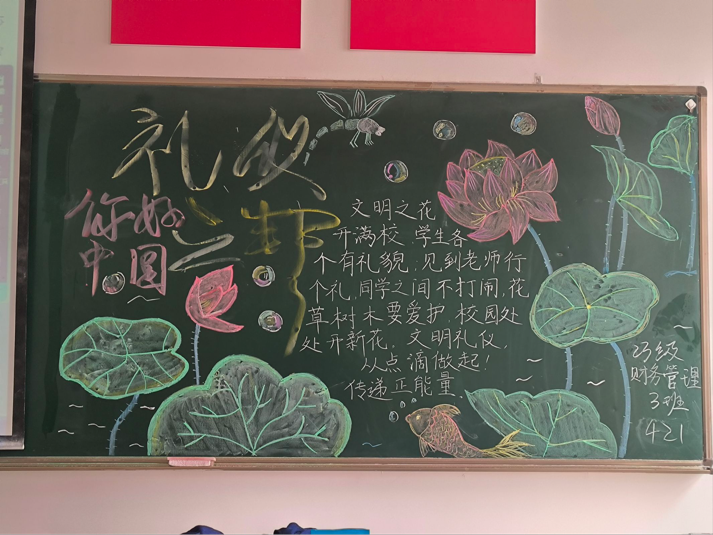 礼仪
之邦
你好
中国
文明之花
开满校 学生各
个有礼貌,见到老师行
个礼,同学之间不打闹,花
草树木要爱护,校园处
处开新花,文明礼仪,
从点滴做起!
传递正能量.
23级
财务管理
3班
421